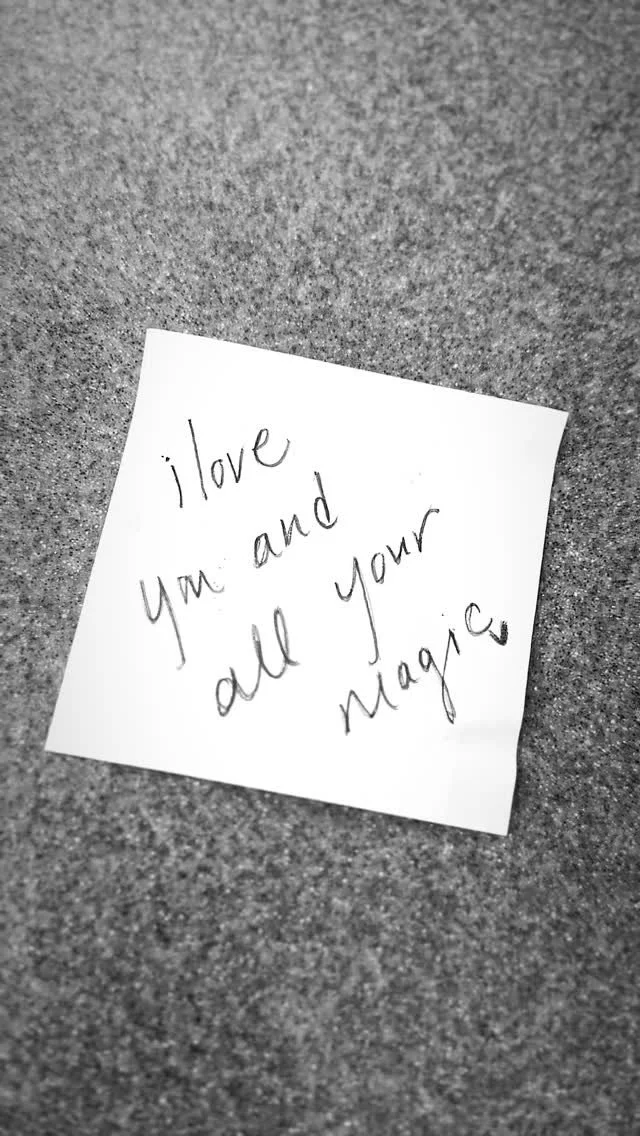 i love
you and
all your
magic